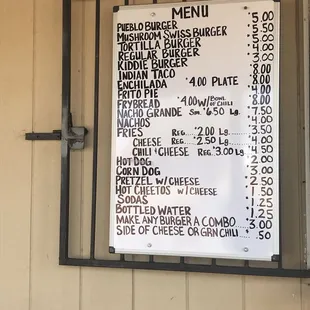 MENU
PUEBLO BURGER 5.00
MUSHROOM SWISS BURGER 5.50
TORTILLA BURGER 5.00
REGULAR BURGER 4.00
KIDDIE BURGER 3.00
INDIAN TACO 8.00
ENCHILADA 4.00 PLATE 8.00
FRITO PIE
FRYBREAD 4.00 W/BOWL OF CHILI 8.00
NACHO GRANDE SM. 6.50 LG. 7.50
NACHOS 4.00
FRIES REG. 2.00 LG. 3.50
CHEESE REG. 2.50 LG. 4.00
CHILI & CHEESE REG. 3.00 LG. 4.50
HOT DOG
CORN DOG
PRETZEL W/CHEESE
HOT CHEETOS W/CHEESE
SODAS 1.25
BOTTLED WATER 1.25
MAKE ANY BURGER A COMBO 3.00
SIDE OF CHEESE OR GRN CHILI .50